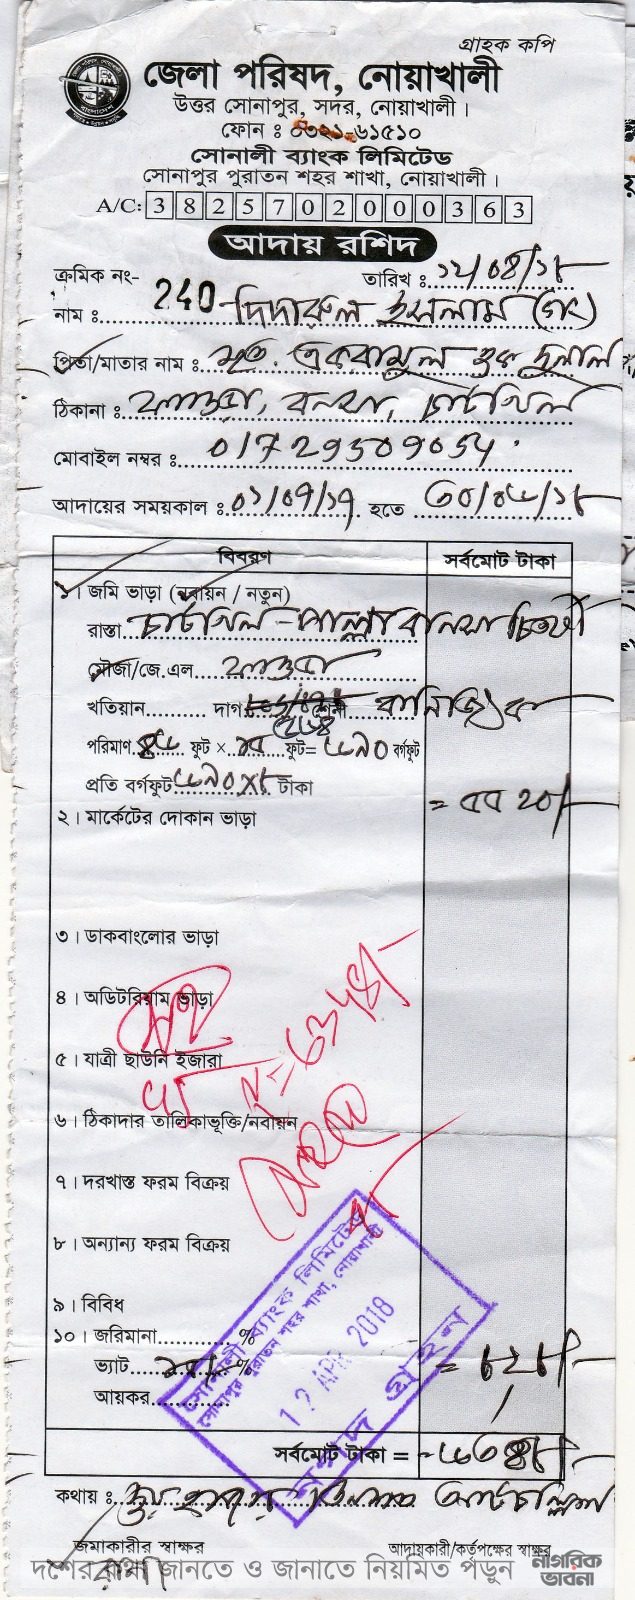 গ্রাহক কপি
জেলা পরিষদ, নোয়াখালী
উত্তর সোনাপুর, সদর, নোয়াখালী।
ফোন ঃ ০৩২১-৬১৫১০
সোনালী ব্যাংক লিমিটেড
সোনাপুর পুরাতন শহর শাখা, নোয়াখালী।
A/C: 3825702000363
আদায় রশিদ
ক্রমিক নং- 240 তারিখ ঃ ১২/০৪/১৮
নাম ঃ দিদারুল ইসলাম (গং)
পিতা/মাতার নাম ঃ মৃত. একরামুল হক দুলাল
ঠিকানা ঃ চাটখিল
মোবাইল নম্বর ঃ 01729509054
আদায়ের সময়কাল ঃ ০১/০৭/১৭ হতে ৩০/০৬/১৮
বিবরণ সর্বমোট টাকা
১। জমি ভাড়া (নবায়ন / নতুন)
রাস্তা চাটখিল-পাল্লা
মৌজা/জে.এল.
খতিয়ান.......... দাগ শ্রেনী বানিজ্যিক
পরিমাণ ফুট × ফুট= ৬৯০ বর্গফুট
প্রতি বর্গফুট ৬৯০X৮ টাকা
= ৫৫২০/-
২। মার্কেটের দোকান ভাড়া
৩। ডাকবাংলোর ভাড়া
৪। অডিটরিয়াম ভাড়া
৫। যাত্রী ছাউনি ইজারা
৬। ঠিকাদার তালিকাভূক্তি/নবায়ন
৭। দরখাস্ত ফরম বিক্রয়
৮। অন্যান্য ফরম বিক্রয়
সোনালী ব্যাংক লিমিটেড
সোনাপুর পুরাতন শহর শাখা, নোয়াখালী
12 APR 2018
নগদ গ্রহন
৯। বিবিধ
১০। জরিমানা............%
ভ্যাট ১৫% = ৮২৮/-
আয়কর
সর্বমোট টাকা = ৬৩৪৮/-
কথায় ঃ ছয় হাজার তিনশত আটচল্লিশ
জমাকারীর স্বাক্ষর আদায়কারী/কর্তৃপক্ষের স্বাক্ষর
দশের কথা জানতে ও জানাতে নিয়মিত পড়ুন নাগরিক ভাবনা